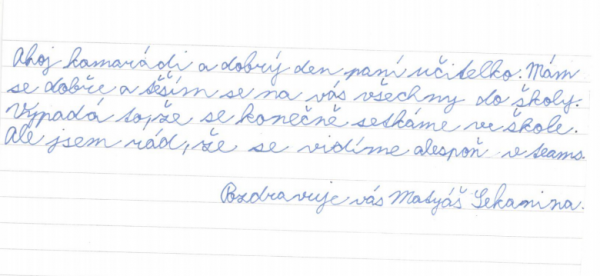 Ahoj kamarádi a dobrý den paní učitelko. Mám
se dobře a těším se na vás všechny do školy.
Vypadá to, že se konečně setkáme ve škole.
Ale jsem rád, že se vidíme alespoň v teams.
Pozdravuje vás Matyáš Sekanina.